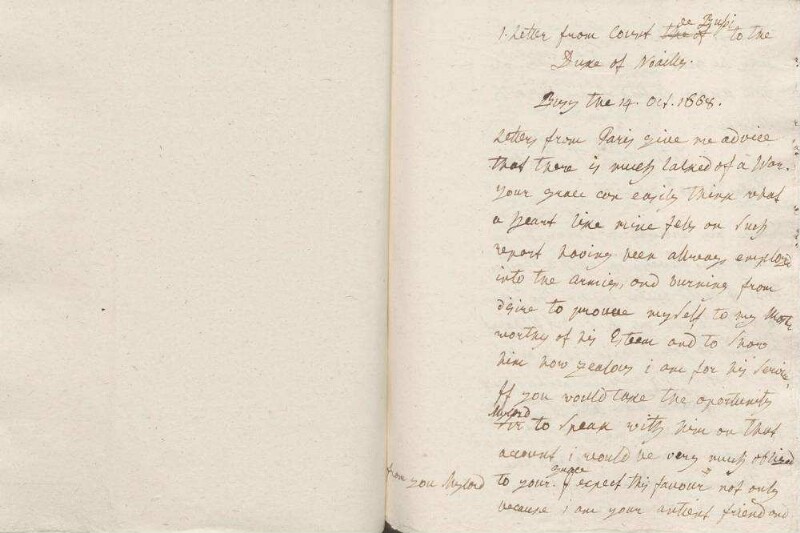 1. Letter from Count the of de Busi to the
Duke of Noailly.
Busy the 14. Oct. 1668.
Letters from Paris give me advice
that there is much talked of a War.
your grace can easily think what
a heart like mine fels on such
report having been allways employd
into the armies, and burning from
desire to prouve myself to my
worthy of his Esteem and to show
him how zealous i am for his Servi
If you would take the oportunity
Mylord
Sir to speak with him on that
account i would be very much oblized
from you Mylord to your grace. I expect this favour not only
because i am your antient friend and